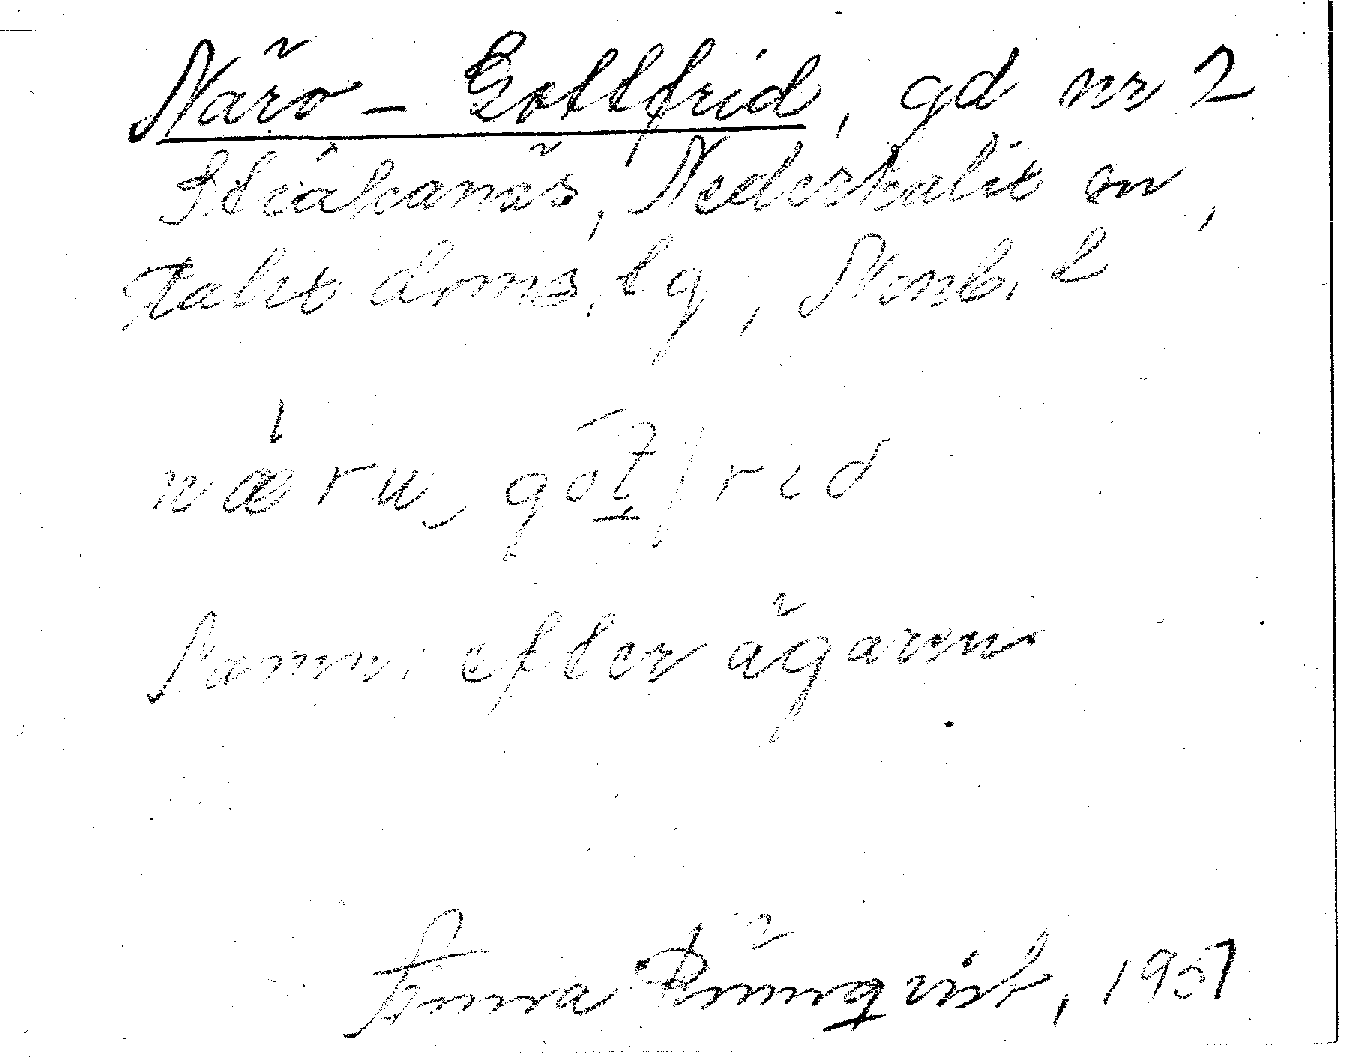 Närö-Gottfrid, gd nr 2
Stråkanäs, Nederkalix sn,
Kalix doms.lg, Nonb. l
næru gót/rid
Namn: efter ägaren
Anna Rönnqvist, 1951